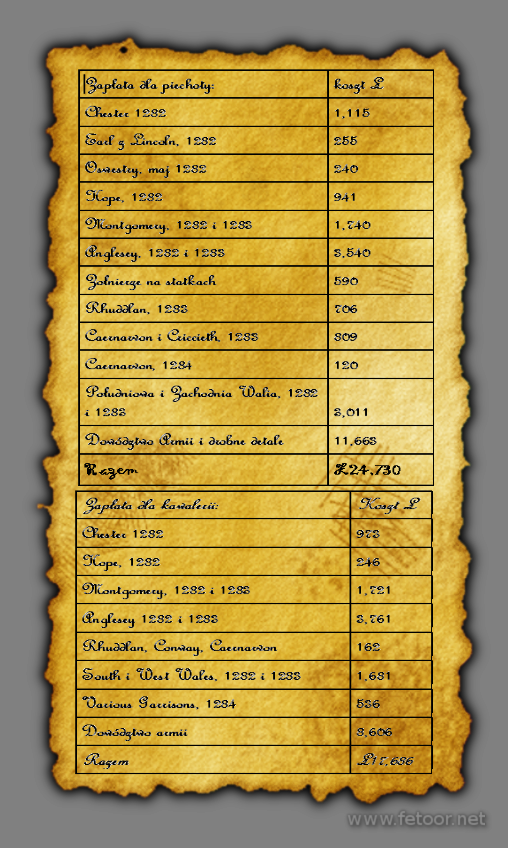 Zapłata dla piechoty: koszt £
Chester 1282 1,115
Earl z Lincoln, 1282 255
Oswestry, maj 1282 240
Hope, 1282 941
Montgomery, 1282 i 1283 1,740
Anglesey, 1282 i 1283 3,540
Żołnierze na statkach 590
Rhuddlan, 1283 706
Caernarvon i Criccieth, 1283 809
Caernarvon, 1284 120
Południowa i Zachodnia Walia, 1282
i 1283 3,011
Dowództwo Armii i drobne detale 11,663
Razem £24,730
Zapłata dla kawalerii: Koszt £
Chester 1282 973
Hope, 1282 246
Montgomery, 1282 i 1283 1,721
Anglesey 1282 i 1283 3,761
Rhuddlan, Conway, Caernarvon 162
South i West Wales, 1282 i 1283 1,681
Various Garrisons, 1284 536
Dowództwo armii 8,606
Razem £17,686
www.fetoor.net